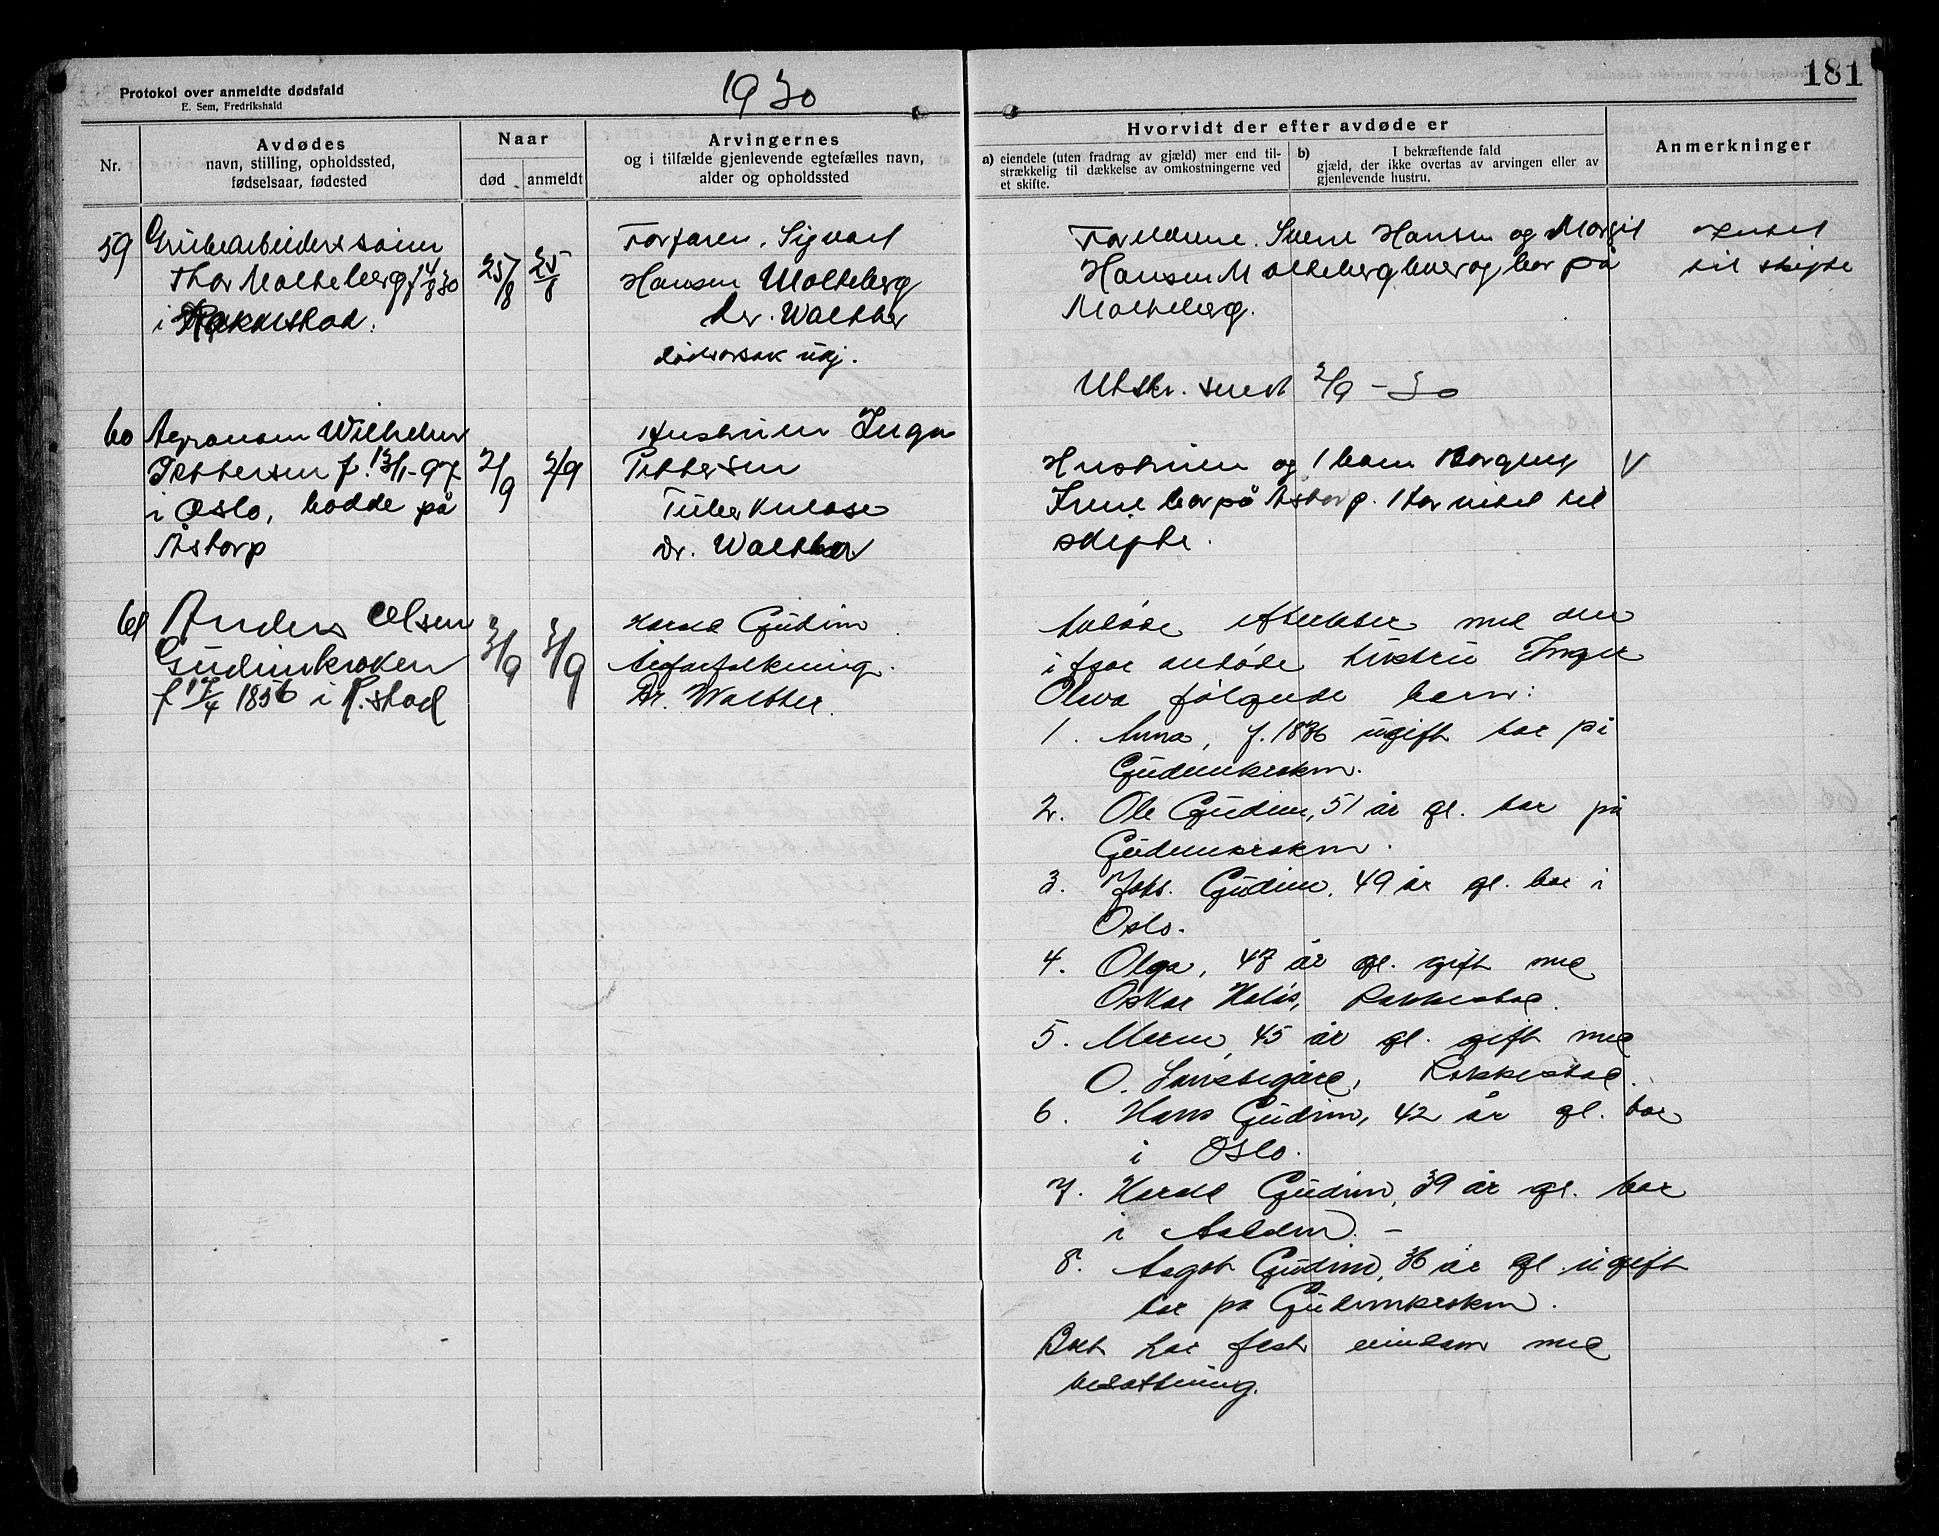 181
Protokol over anmeldte dødsfald
E. Sem, Fredrikshald
1930
Nr.
Avdødes
navn, stilling, opholdssted,
fødselsaar, fødested
Naar
død
anmeldt
Arvingernes
og i tilfælde gjenlevende egtefælles navn,
alder og opholdssted
Hvorvidt der efter avdøde er
a) eiendele (uten fradrag av gjæld) mer end til-
strækkelig til dækkelse av omkostningerne ved
et skifte.
b) I bekræftende fald
gjæld, der ikke overtas av arvingen eller av
gjenlevende hustru.
Anmerkninger
59
Grubearbeiders sønn
Thor Molteberg f 4/8 30
i Rakkestad.
25/8
25/8
Farfaren, Sigvart
Hansen Molteberg
Dr. Walther
dødsorsak
Foreldrene. Hansen og Margit
Hansen Molteberg lever og bor på
Molteberg.
Utskr. sendt 2/9 - 30
Intet
til skifte
60
Agronom Wilhelm
Pettersen f. 13/1-97
i Oslo, bodde på
Åstorp
2/9
2/9
Hustruen Inga
Pettersen
Tuberkulose
Dr. Walther
Hustruen og 1 barn Borgny
Irene bor på Åstorp. Har intet til
skifte.
V
61
Anders Olsen
Gudimkroken
f 17/4 1856 i R.stad
3/9
3/9
Harald Gudim
Åreforkalkning.
Dr. Walther.
Avdøde efterlater med den
i fjor avdøde hustru Inger
Olava følgende barn:
1. Anna, f. 1876 ugift bor på
Gudimkroken.
2. Ole Gudim, 51 år gl. bor på
Gudimkroken.
3. Johs. Gudim, 49 år gl. bor i
Oslo.
4. Olga, 47 år gl. gift med
Oskar Rakkestad.
5. Maren, 45 år gl. gift med
O. Rakkestad.
6. Hans Gudim, 42 år gl. bor
i Oslo.
7. Harald Gudim, 39 år gl. bor
i
8. Aagot Gudim, 36 år gl. ugift
bor på Gudimkroken.
Boet har fast eiendom med
besætning.